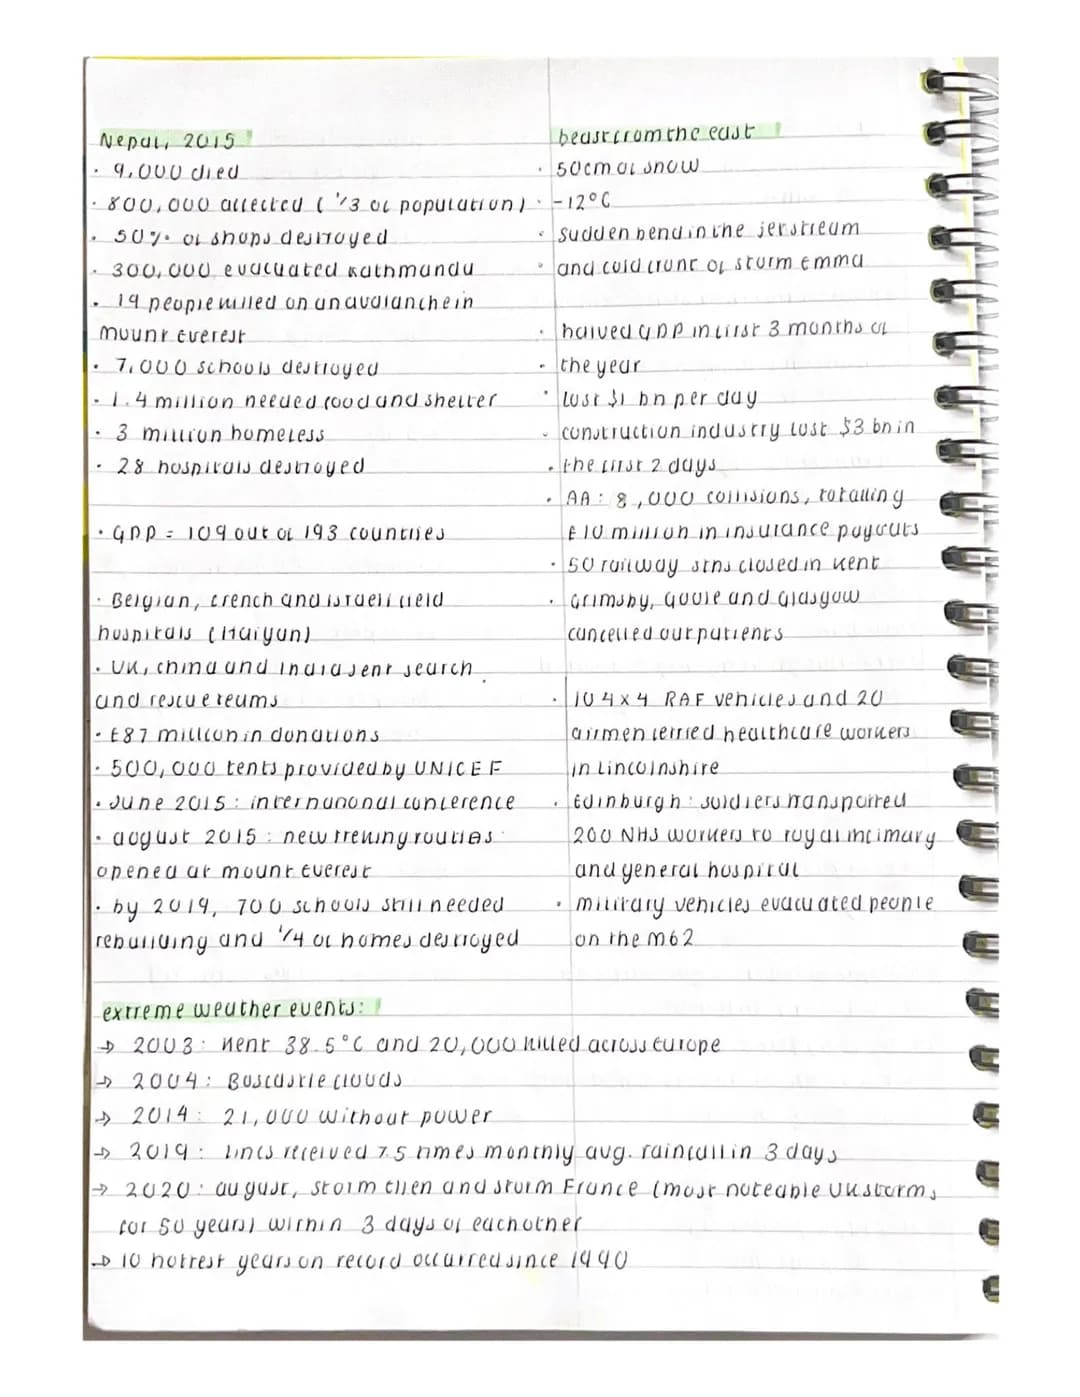 Nepal, 2015
· 9,000 died
· 800,000 affected (1/3 of population)
· 50% of shops destroyed
· 300,000 evacuated kathmandu
· 19 people killed on an avalanche in
mount Everest
· 7,000 schools destroyed
· 1.4 million needed food and shelter
· 3 million homeless
· 28 hospitals destroyed
· GDP = 109 out of 193 countries
· Belgian, french and israeli field
hospitals (Haiyan)
· UK, china and india sent search
and rescue teams
· £87 million in donations
· 500,000 tents provided by UNICEF
· June 2015: international conference
· august 2015: new treking routes
opened at mount Everest
· by 2019, 700 schools still needed
rebuilding and 1/4 of homes destroyed
beast from the east
· 50cm of snow
· -12°C
· sudden bend in the jetstream
· and cold front of storm Emma
· halved GDP in first 3 months of
· the year
· lost $1 bn per day
· construction industry lost $3 bn in
· the first 2 days
· AA: 8,000 collisions, totalling
£10 million in insurance payouts
· 50 railway stns closed in kent
· Grimsby, Goole and Glasgow
cancelled outpatients
· 10 4x4 RAF vehicles and 20
airmen ferried healthcare workers
in Lincolnshire
· Edinburgh: soldiers transported
200 NHS workers to royal infimary
and general hospital
· military vehicles evacuated people
on the m62
extreme weather events:
→ 2003: Kent 38.5°C and 20,000 killed across Europe
→ 2004: Boscastle floods
→ 2014: 21,000 without power
→ 2019: lincs received 7.5 times monthly avg. rainfall in 3 days
→ 2020: august, storm Ellen and storm France (most noteable UK storms
for 50 years) within 3 days of eachother
→ 10 hottest years on record occurred since 1990